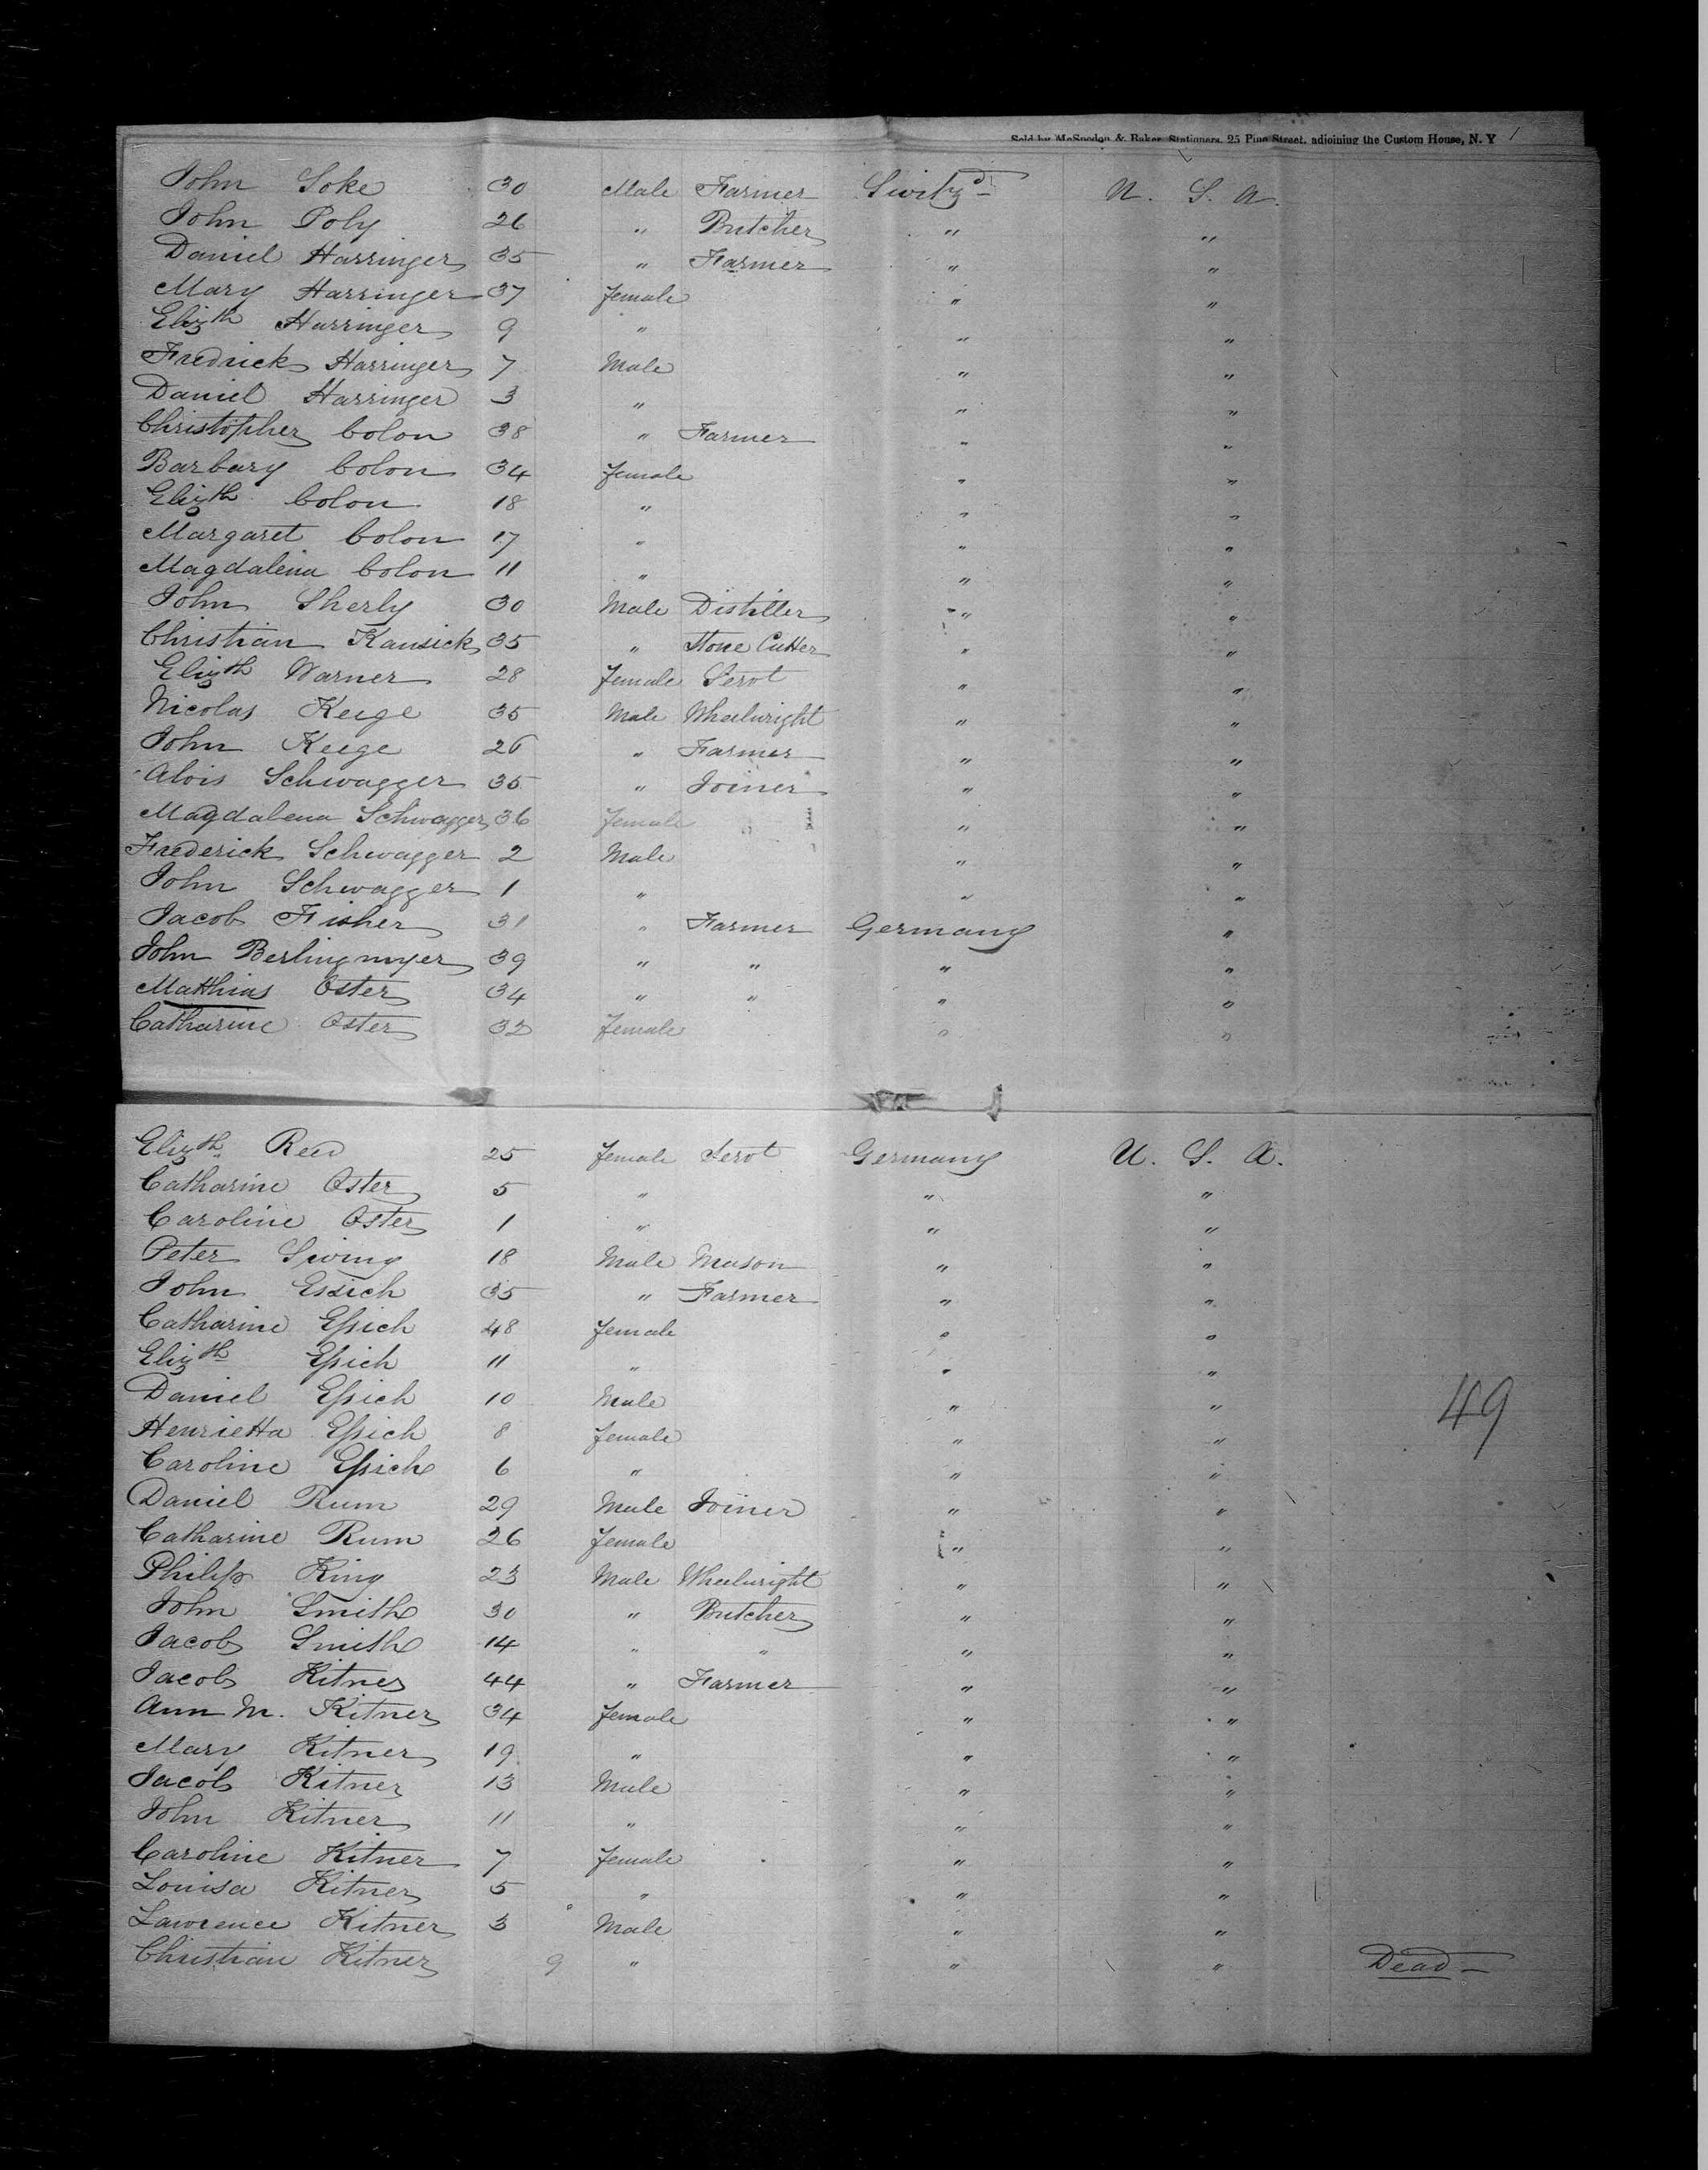 Sold by McSpedon & Baker, Stationers, 25 Pine Street, adjoining the Custom House, N. Y
John Soke 30 Male Farmer Switzd U. S. A.
John Poly 26 " Butcher " "
Daniel Harringer 35 " Farmer " "
Mary Harringer 37 female " "
Elizth Harringer 9 " " "
Fredrick Harringer 7 Male " "
Daniel Harringer 3 " " "
Christopher Colon 38 " Farmer " "
Barbary Colon 34 female " "
Elizth Colon 18 " " "
Margaret Colon 17 " " "
Magdalena Colon 11 " " "
John Sherly 30 Male Distiller " "
Christian Kansick 35 " Stone Cutter " "
Elizth Warner 28 female Servt " "
Nicolas Keege 35 Male Wheelwright " "
John Keege 26 " Farmer " "
Alois Schwagger 35 " Joiner " "
Magdalena Schwagger 36 female " "
Frederick Schwagger 2 Male " "
John Schwagger 1 " " "
Jacob Fisher 31 " Farmer Germany "
John Berlingmyer 39 " " " "
Matthias Oster 34 " " " "
Catharine Oster 32 female " "
Elizth Reed 25 female Servt Germany U. S. A.
Catharine Oster 5 " " "
Caroline Oster 1 " " "
Peter Swing 18 Male Mason " "
John Essich 35 " Farmer " "
Catharine Essich 48 female " "
Elizth Essich 11 " " "
Daniel Essich 10 Male " "
49
Henrietta Essich 8 female " "
Caroline Essich 6 " " "
Daniel Rum 29 Male Joiner " "
Catharine Rum 26 female " "
Philip King 23 Male Wheelwright " "
John Smith 30 " Butcher " "
Jacob Smith 14 " " " "
Jacob Kitner 44 " Farmer " "
Ann M. Kitner 34 female " "
Mary Kitner 19 " " "
Jacob Kitner 13 Male " "
John Kitner 11 " " "
Caroline Kitner 7 female " "
Louisa Kitner 5 " " "
Lawrence Kitner 3 Male " "
Christian Kitner 9 " " " Dead